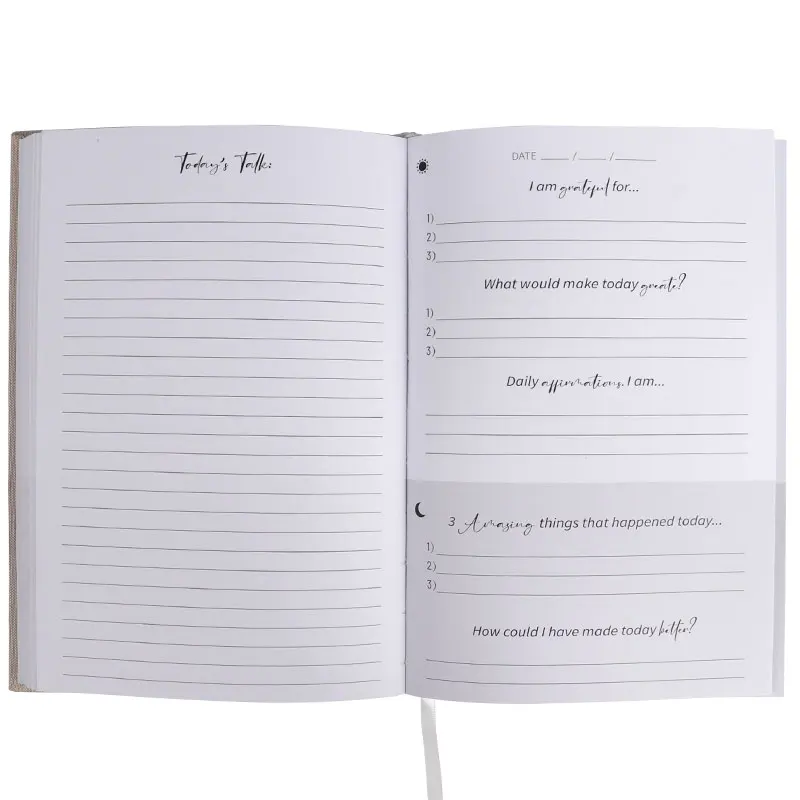 Today's Talk:
DATE ____ / ____ / ____
I am grateful for...
1)
2)
3)
What would make today greate?
1)
2)
3)
Daily affirmations. I am...
3 Amazing things that happened today...
1)
2)
3)
How could I have made today better?